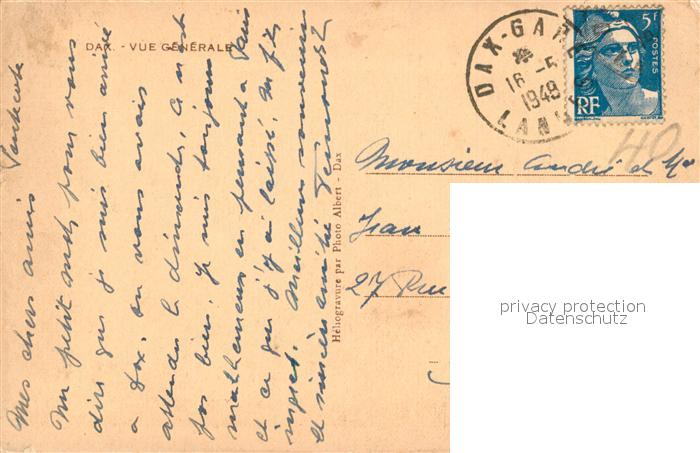 DAX. - VUE GÉNÉRALE
Pentecote
Mes chers amis
Un petit mot pour vous
dire que je suis bien arrivé
a Dax, ou vous avais
attendu le dimanche,
pas bien. Je suis toujours
malheureux en pensant a Paris
et ce que j'y ai laissé.
Meilleurs souvenirs
et sincère amitié
Héliogravure par Photo Albert - Dax
DAX-GARE
16 -5
1948
LANDES
5F
POSTES
RF
40
Monsieur André et Me
Jean
27 Rue
privacy protection
Datenschutz